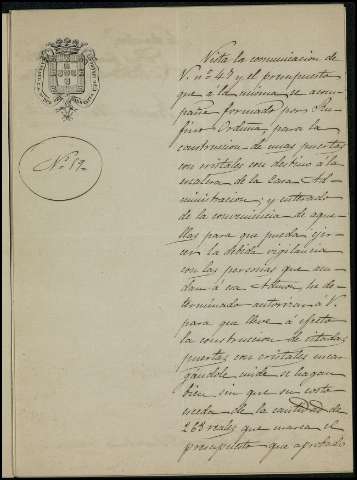 Nº 59.
Vista la comunicacion de
V. nº 47 y el presupuesto
que a la misma se acom-
paña formado por Ru-
fino Orduña, para la
construsion de unas puertas
con cristales con destino á la
escalera de la Casa Ad-
ministracion; y enterado
de la conveniencia de aque-
llas para que pueda ejer-
cer la debida vigilancia
con las personas que acu-
dan á esa Admon, he de-
terminado autorizar á V.
para que lleve á efecto
la construccion de citadas
puertas con cristales encar-
gandole cuide se hagan
bien sin que su coste
esceda de la cantidad de
263 reales que marca el
presupuesto que aprobado